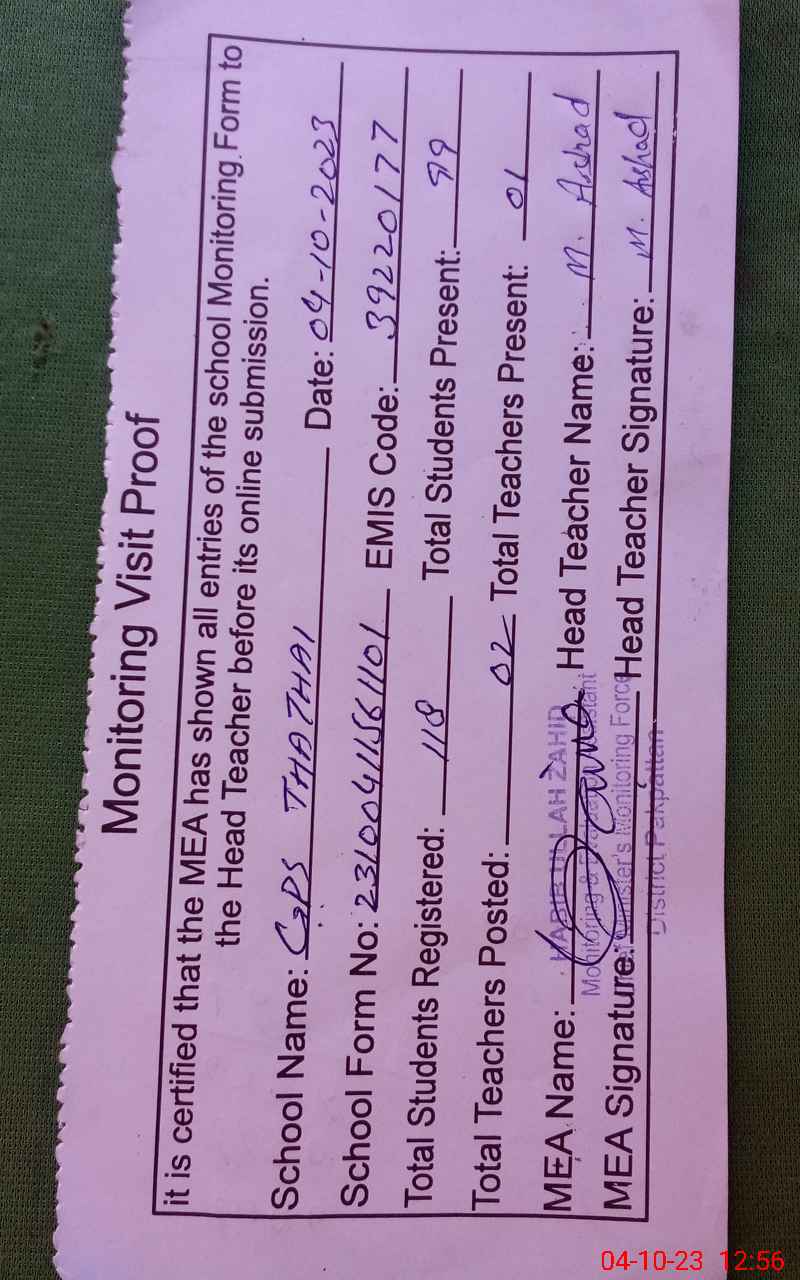 Monitoring Visit Proof
it is certified that the MEA has shown all entries of the school Monitoring Form to
the Head Teacher before its online submission.
School Name: GPS THATHAI Date: 04-10-2023
School Form No: 23100411561101 EMIS Code: 39220177
Total Students Registered: 118 Total Students Present: 99
Total Teachers Posted: 02 Total Teachers Present: 01
MEA Name: HABIB ULLAH ZAHID Head Teacher Name: M. Arshad
Monitoring &
MEA Signature: Minister's Monitoring Force Head Teacher Signature: M. Arshad
District Pakpattan
04-10-23 12:56